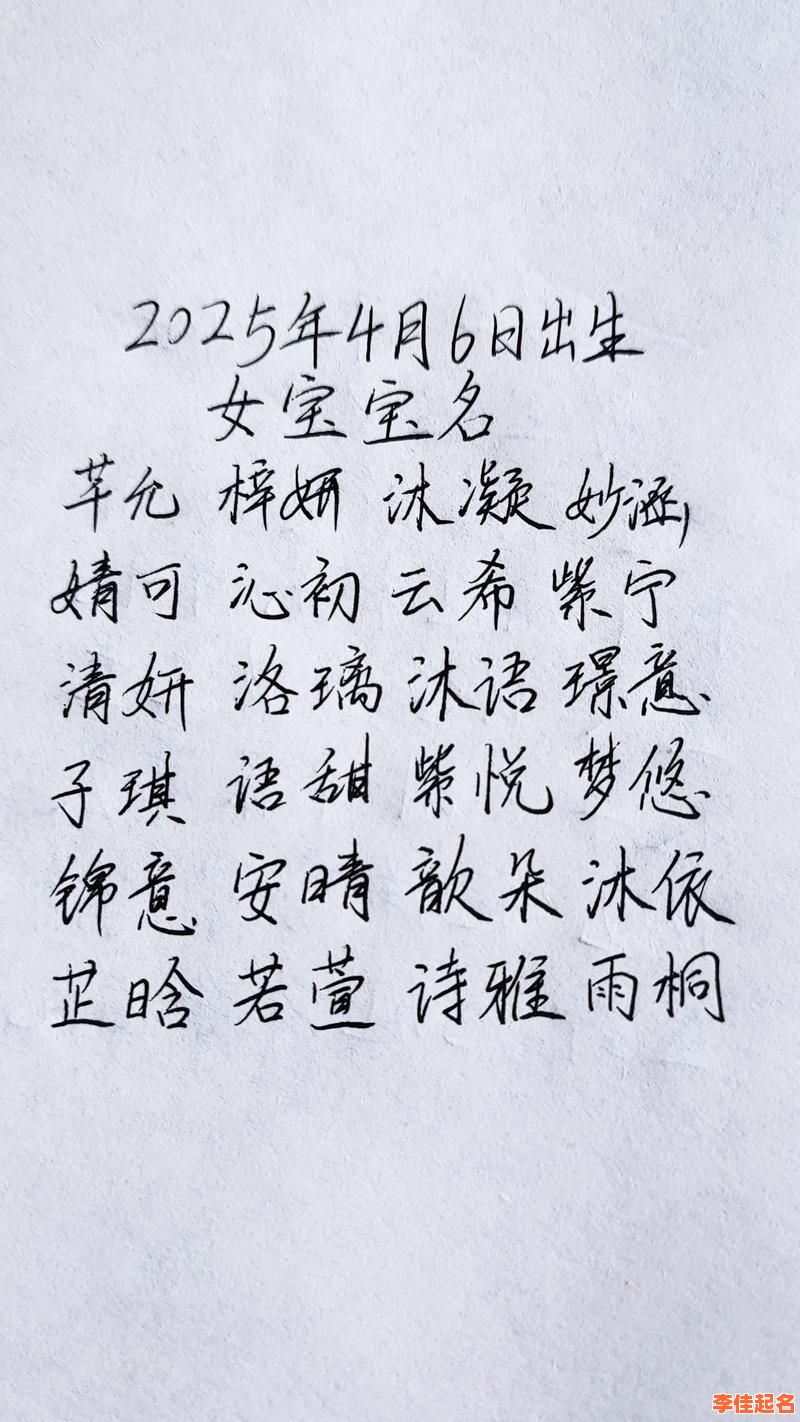 2025年4月6日出生
女宝宝名
芊允 梓妍 沐凝 妙涵
婧可 沁初 云希 紫宁
清妍 洛璃 沐语 璟意
子琪 语甜 紫悦 梦悠
锦意 安晴 歆朵 沐依
芷晗 若萱 诗雅 雨桐
李佳起名